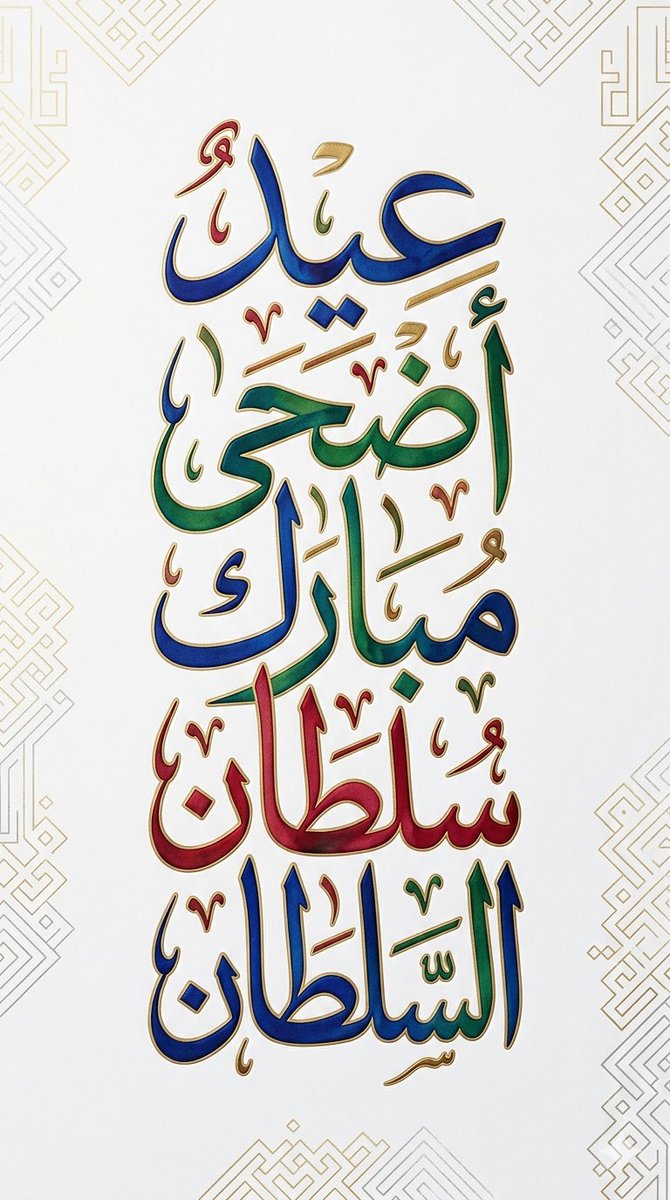 عِيدُ
أَضْحَى
مُبَارَك
سُلْطَان
السَّلْطَان